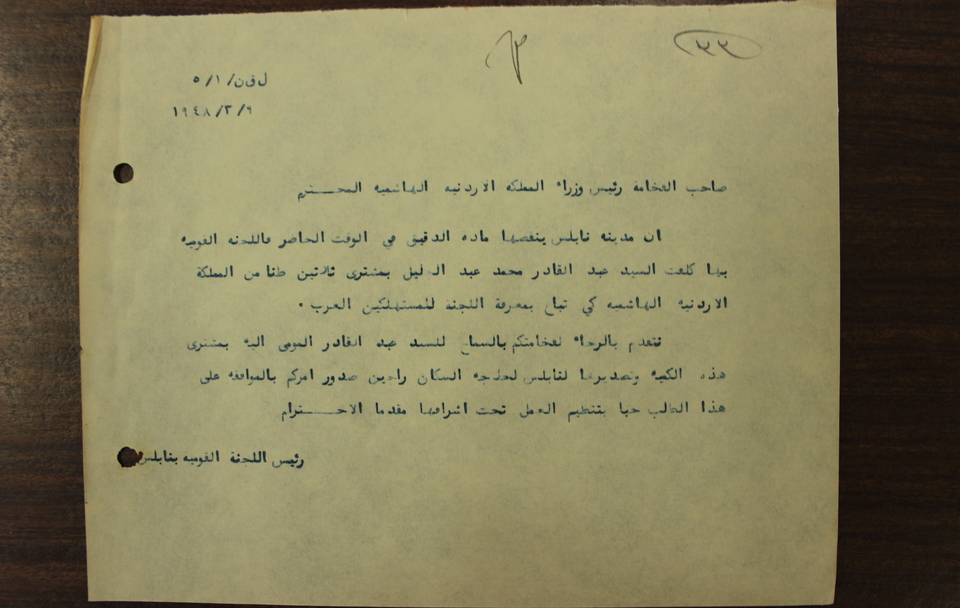 ٣٣
ل ق ن/ ١/ ٥
١٩٤٨/٣/٩
صاحب الفخامة رئيس وزراء المملكه الاردنيه الهاشميه المحـــترم
ان مدينه نابلس ينقصها ماده الدقيق في الوقت الحاضر فاللجنه القوميه
بها كلفت السيد عبد القادر محمد عبد الجليل بمشترى ثلاثين طنا من المملكة
الاردنيه الهاشميه كي تباع بمعرفة اللجنة للمستهلكين العرب ٠
نتقدم بالرجاء لفخامتكم بالسماح للسيد عبد القادر المومى اليه بمشترى
هذه الكميه وتصديرها لنابلس لحاجه السكان راجين صدور امركم بالموافقه على
هذا الطلب حبا بتنظيم العمل تحت اشرافها مقدما الاحـــترام
رئيس اللجنة القوميه بنابلس